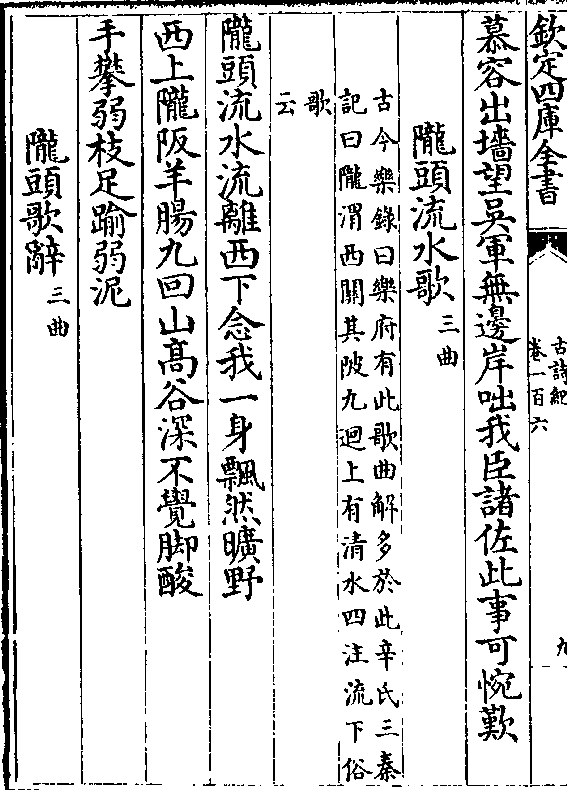 欽定四庫全書
古詩紀
卷一百六
九
慕容出墻望吳軍無邊岸咄我臣諸佐此事可惋歎
隴頭流水歌三曲
古今樂錄曰樂府有此歌曲解多於此辛氏三秦
記曰隴渭西關其陂九迴上有清水四注流下俗
歌
云
隴頭流水流離西下念我一身飄然曠野
西上隴阪羊腸九回山髙谷深不覺脚酸
手攀弱枝足踰弱泥
隴頭歌辭三曲